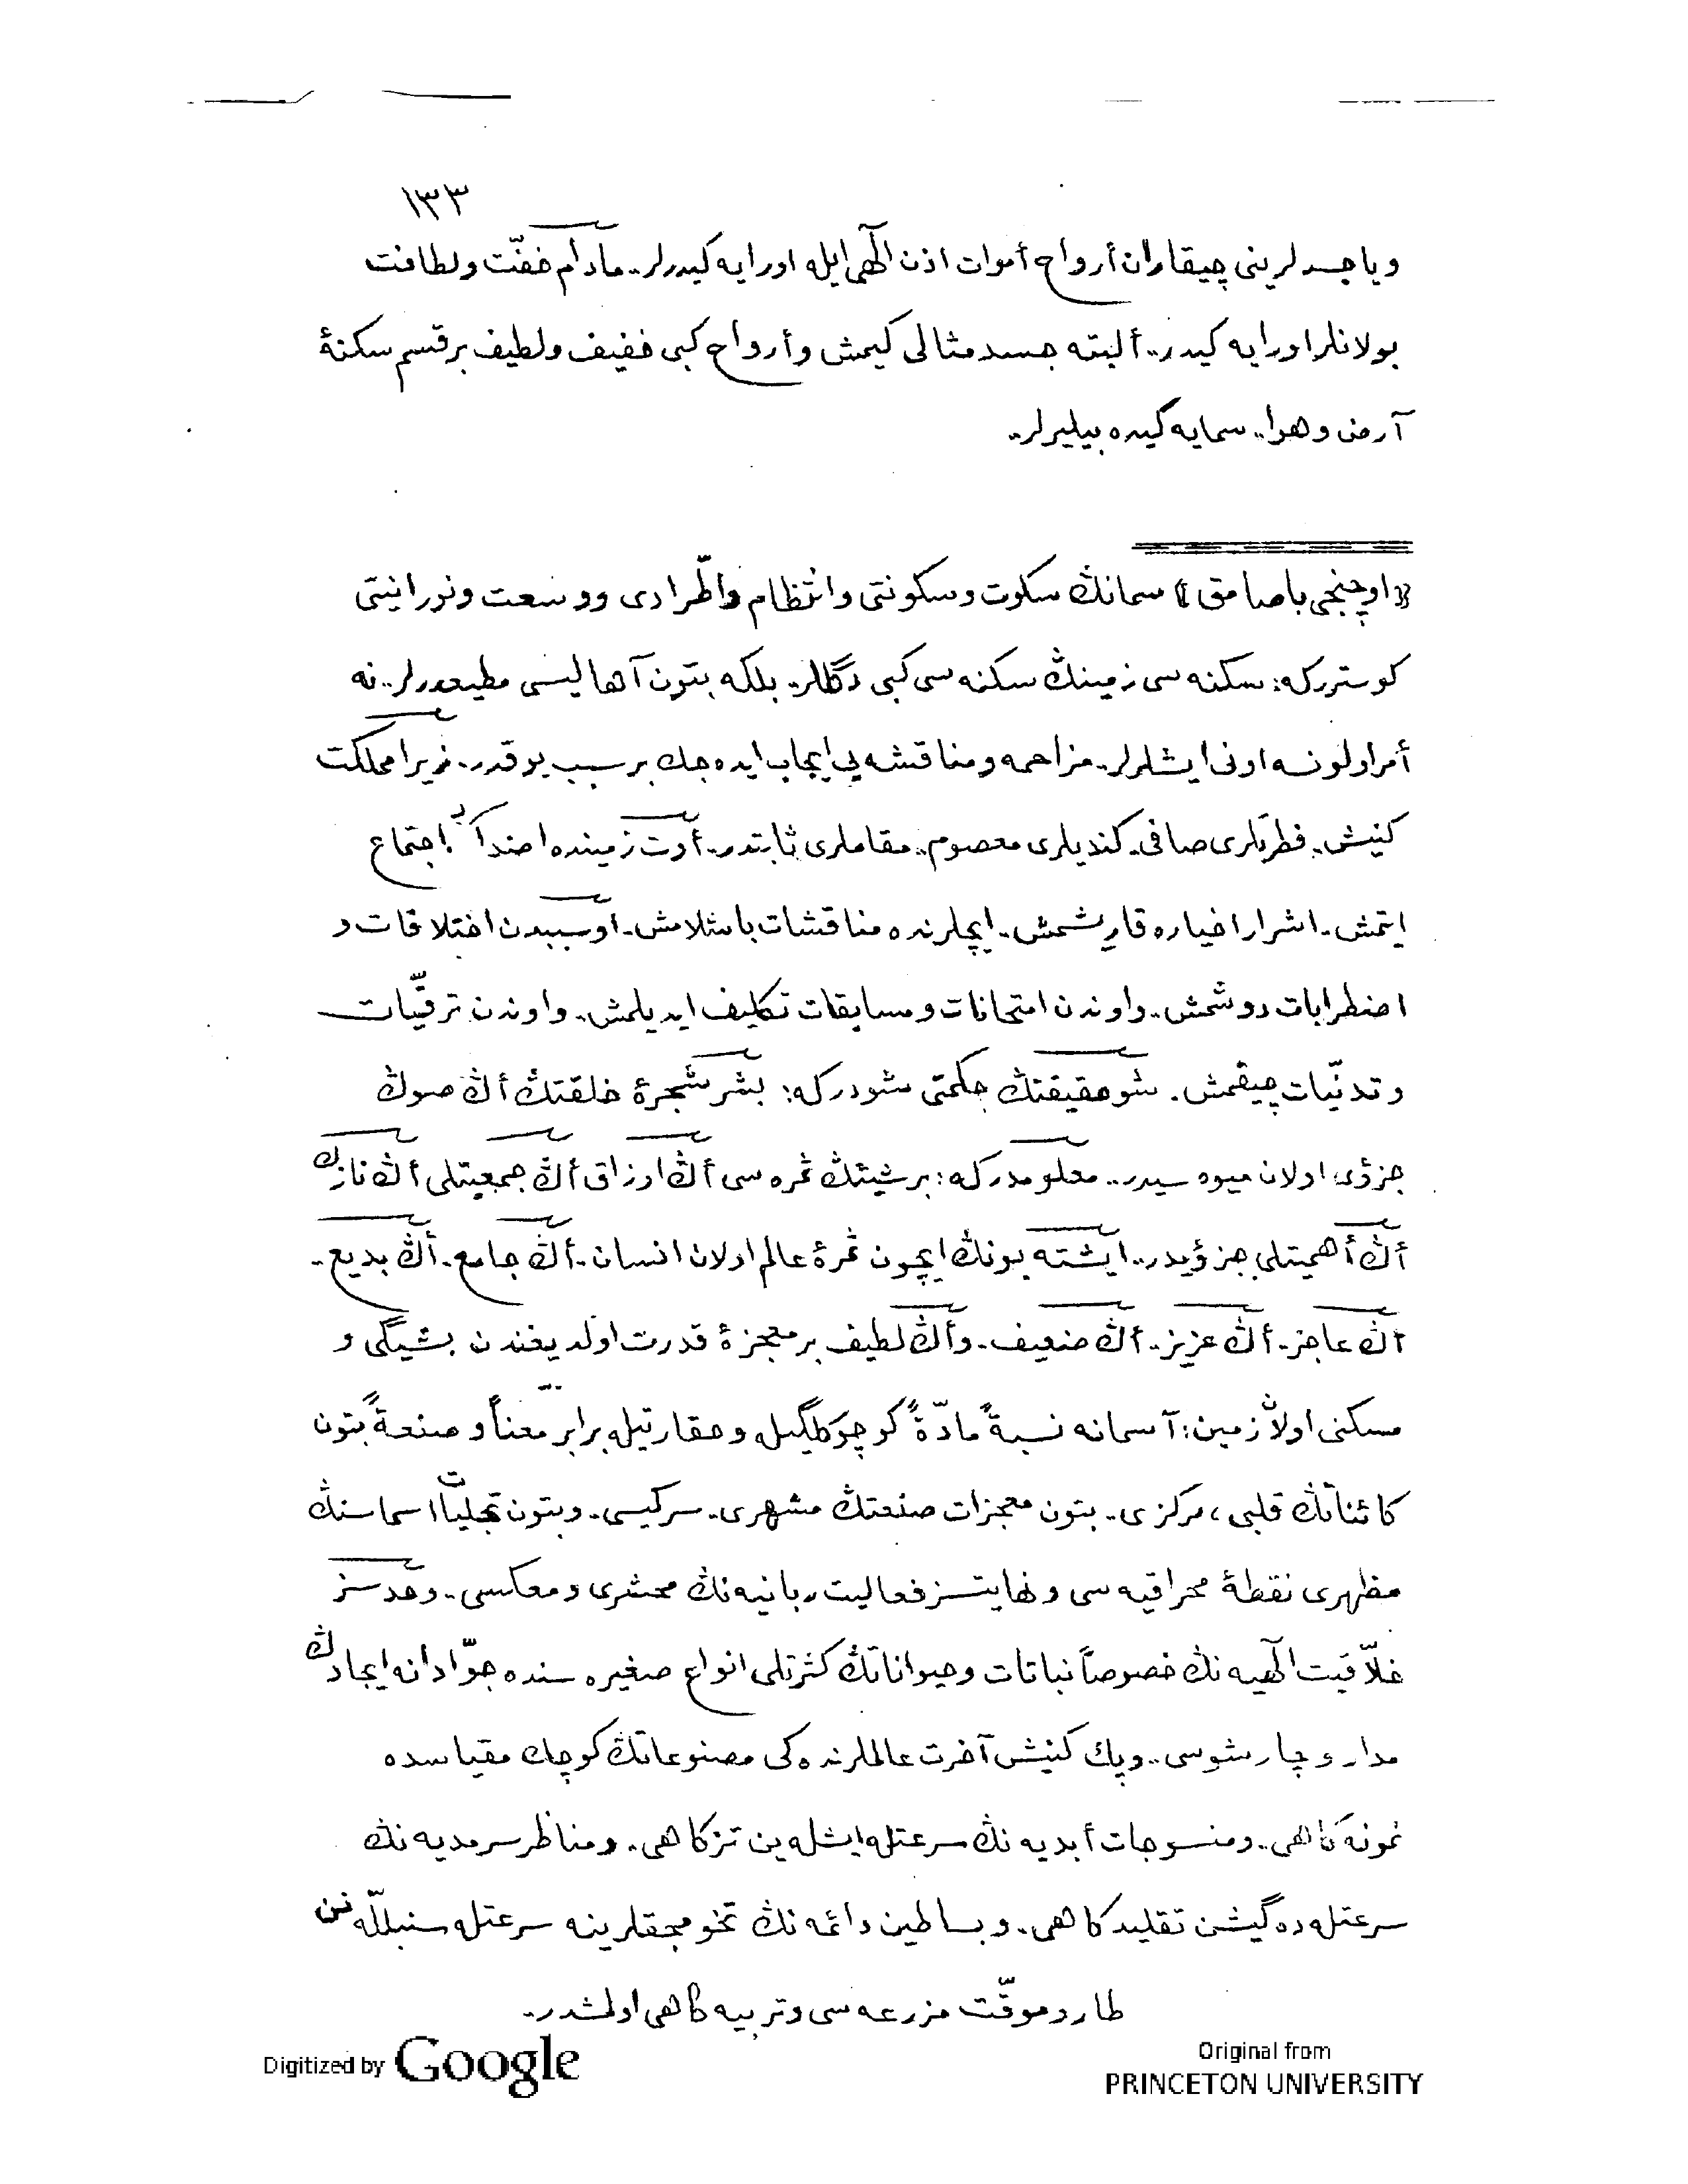 ١٣٣
ويا جسدلرينى چيقاران أرواح أموات اذن الٓهى ايله اورايه كيدرلر.. مادام خفّت ولطافت
بولانلر اورايه كيدر.. ألبته جسد مثالى كيمش وأرواح كبى خفيف ولطيف بر قسم سكنهٔ
آرض وهوا.. سمايه كيده بيليرلر..
﴿اوچنجى باصامق﴾ سمانڭ سكوت وسكونتى وانتظام واطّرادى ووسعت ونورانيتى
كوستررکه: سكنه سى زمينڭ سكنه سى كبى دگللر.. بلكه بتون آهاليسى مطيعدرلر.. نه
أمر اولونسه اونى ايشلرلر.. مزاحمه ومناقشه يى ايجاب ايده جك بر سبب يوقدر.. زيرا مملكت
كنيش.. فطرتلرى صافى.. كنديلرى معصوم.. مقاملرى ثابتدر.. أوت زمينده اضداد اجتماع
ايتمش.. اشرار اخياره قاريشمش.. ايچلرنده مناقشات باشلامش.. او سببدن اختلافات و
اضطرابات دوشمش.. واوندن امتحانات ومسابقات تكليف ايديلمش.. واوندن ترقّيات
وتدنّيات چيقمش. شو حقيقتڭ حكمتى شودركه: بشر شجرهٔ خلقتڭ أڭ صوڭ
جزؤى اولان ميوه سيدر.. معلومدركه: بر شيئڭ ثمره سى أڭ اوزاق أڭ جمعيتلى أڭ نازك
أڭ أهميتلى جزؤيدر.. ايشته بونڭ ايچون ثمرهٔ عالم اولان انسان.. أڭ جامع.. أڭ بديع..
أڭ عاجز.. أڭ عزيز.. أڭ ضعيف.. وأڭ لطيف بر معجزهٔ قدرت اولديغندن بشيگى و
مسكنى اولان زمين: آسمانه نسبةً مادّةً كوچوكلگيله وحقارتيله برابر معناً و صنعةً بتون
كائناتڭ قلبى، مركزى.. بتون معجزات صنعتڭ مشهرى.. سرگيسى.. وبتون تجليات اسماسنڭ
مظهرى نقطهٔ محراقيه سى و نهايتسز فعاليت ربانيه نڭ محشرى ومعكسى.. وحدسز
خلّاقيت الٓهيه نڭ خصوصاً نباتات وحيواناتڭ كثرتلى انواع صغيره سنده جوّادانه ايجادڭ
مدار وچارشوسى.. وپك كنيش آخرت عالملرنده كى مصنوعاتڭ كوچك مقياسده
نمونه گاهى.. ومنسوجات أبديه نڭ سرعتله ايشله ين تزگاهى.. ومناظر سرمديه نڭ
سرعتله ده گيشن تقليدگاهى.. وبساطين دائمه نڭ تخومجقلرينه سرعتله سنبللّه نن
طار وموقّت مزرعه سى وتربيه گاهى اولمشدر..
Digitized by Google
Original from
PRINCETON UNIVERSITY